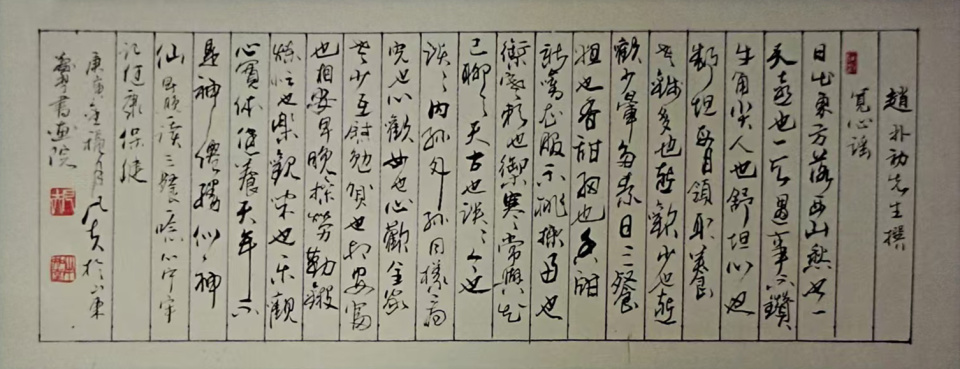 趙朴初先生撰
寬心謠
日出東方落西山愁也一
天喜也一天遇事不鑽
牛角尖人也舒坦心也
舒坦每月領取養
老錢多也喜歡少也喜
歡少葷多素日三餐
粗也香甜細也香甜
新舊衣服不挑揀好也
禦寒賴也禦寒常與知
己聊〻天古也談〻今也
談〻内孫外孫同樣看
兒也心歡女也心歡全家
老少互慰勉貧也相安富
也相安早晚操勞勤鍛
煉忙也樂觀閑也樂觀
心寬体健養天年不
是神僊勝似神
仙早晚讀三餐唸心中牢
記健康保健
庚寅月於山東
書画院